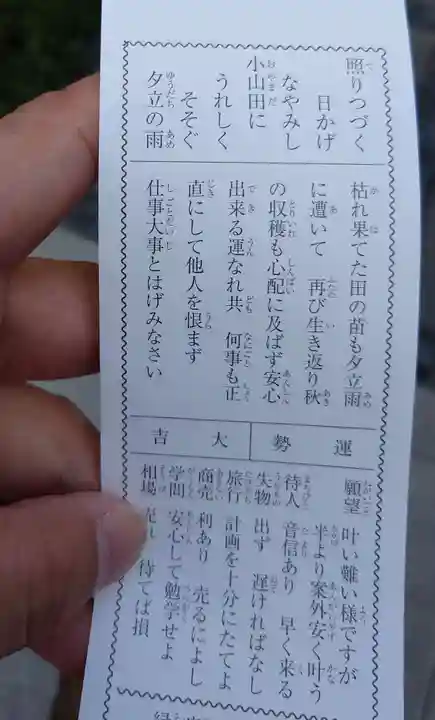 照りつづく
日かげ
なやみし
小山田に
うれしく
そそぐ
夕立の雨
枯れ果てた田の苗も夕立雨
に遭いて 再び生き返り秋
の収穫も心配に及ばず安心
出来る運なれ共 何事も正
直にして他人を恨まず
仕事大事とはげみなさい
運勢 大吉
願望 叶い難い様ですが
半より案外安く叶う
待人 音信あり 早く来る
失物 出ず 遅ければなし
旅行 計画を十分にたてよ
商売 利あり 売るによし
学問 安心して勉学せよ
相場 売れ 待てば損